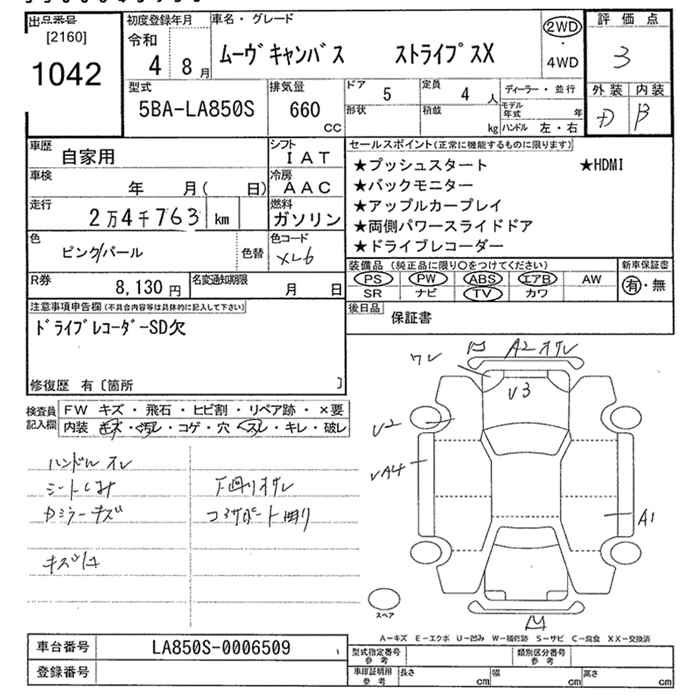 出品番号
[2160]
1042
初度登録年月
令和
4 8月
車名・グレード
ムーヴキャンバス ストライプスX
2WD
・
4WD
評価点
3
外装 内装
D B
型式
5BA-LA850S
排気量
660
CC
ドア 5
定員 4 人
形状
積載 kg
ディーラー・並行
モデル年式 年
ハンドル 左・右
車歴 自家用
シフト IAT
車検 年 月( 日)
冷房 AAC
走行 2万4千763 km
燃料 ガソリン
色 ピンク/パール 色替
色コード XL6
R券 8,130円
名変通知期限 月 日
セールスポイント(正常に機能するものに限ります)
★プッシュスタート ★HDMI
★バックモニター
★アップルカープレイ
★両側パワースライドドア
★ドライブレコーダー
装備品(純正品に限り○をつけてください) 新車保証書
PS PW ABS エアB AW
SR ナビ TV カワ
有・無
後日品 保証書
注意事項申告欄(不具合内容等は具体的に記入して下さい)
ドライブレコーダーSD欠
修復歴 有〔箇所 〕
検査員記入欄
FW キズ・飛石・ヒビ割・リペア跡・×要
内装 キズ・汚レ・コゲ・穴・スレ・キレ・破レ
ハンドルスレ
シートしみ
下廻りサビ
コアサポート曲り
ワレ
A2
U3
U2
UA4
A1
スペア
A−キズ E−エクボ U−凹み W−補修跡 S−サビ C−腐食 XX−交換済
車台番号 LA850S-0006509
登録番号
型式指定番号 参考
類別区分番号 参考
車庫証明用 参考
長さ cm 幅 cm 高さ cm